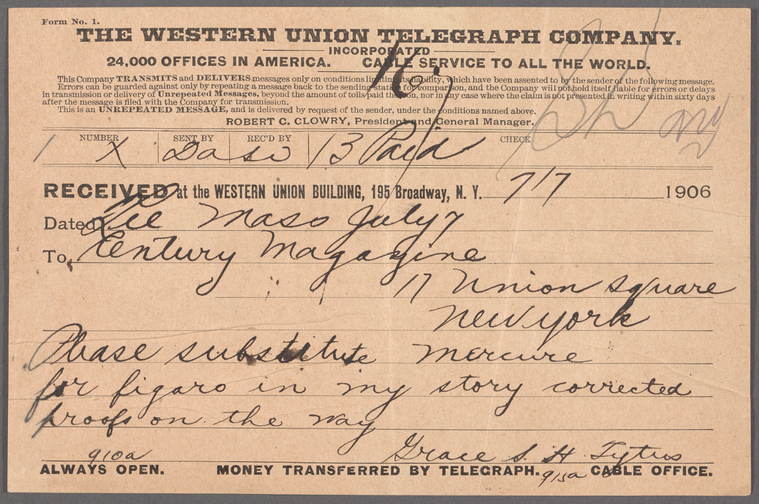 Form No. 1.
THE WESTERN UNION TELEGRAPH COMPANY.
INCORPORATED
24,000 OFFICES IN AMERICA. CABLE SERVICE TO ALL THE WORLD.
This Company TRANSMITS and DELIVERS messages only on conditions limiting its liability, which have been assented to by the sender of the following message.
Errors can be guarded against only by repeating a message back to the sending station for comparison, and the Company will not hold itself liable for errors or delays
in transmission or delivery of Unrepeated Messages, beyond the amount of tolls paid thereon, nor in any case where the claim is not presented in writing within sixty days
after the message is filed with the Company for transmission.
This is an UNREPEATED MESSAGE, and is delivered by request of the sender, under the conditions named above.
ROBERT C. CLOWRY, President and General Manager.
NUMBER SENT BY REC'D BY CHECK
1 X Da So 13 Paid
RECEIVED at the WESTERN UNION BUILDING, 195 Broadway, N. Y. 7/7 1906
Dated Lee Mass July 7
To Century Magazine
17 Union Square
New York
Please substitute Mercure
for figaro in my story corrected
proofs on the way
Grace S. H. Tytus
910a
915a
ALWAYS OPEN. MONEY TRANSFERRED BY TELEGRAPH. CABLE OFFICE.